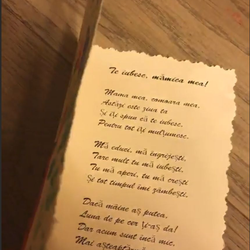 Te iubesc, mămica mea!
Mama mea, comoara mea,
Astăzi este ziua ta
Și îți spun că te iubesc,
Pentru tot îți mulțumesc.
Mă educi, mă îngrijești,
Tare mult tu mă iubești,
Tu mă aperi, tu mă crești
Și tot timpul îmi zâmbești.
Dacă mâine aș putea,
Luna de pe cer ți-aș da!
Dar acum sunt încă mic,
Mai